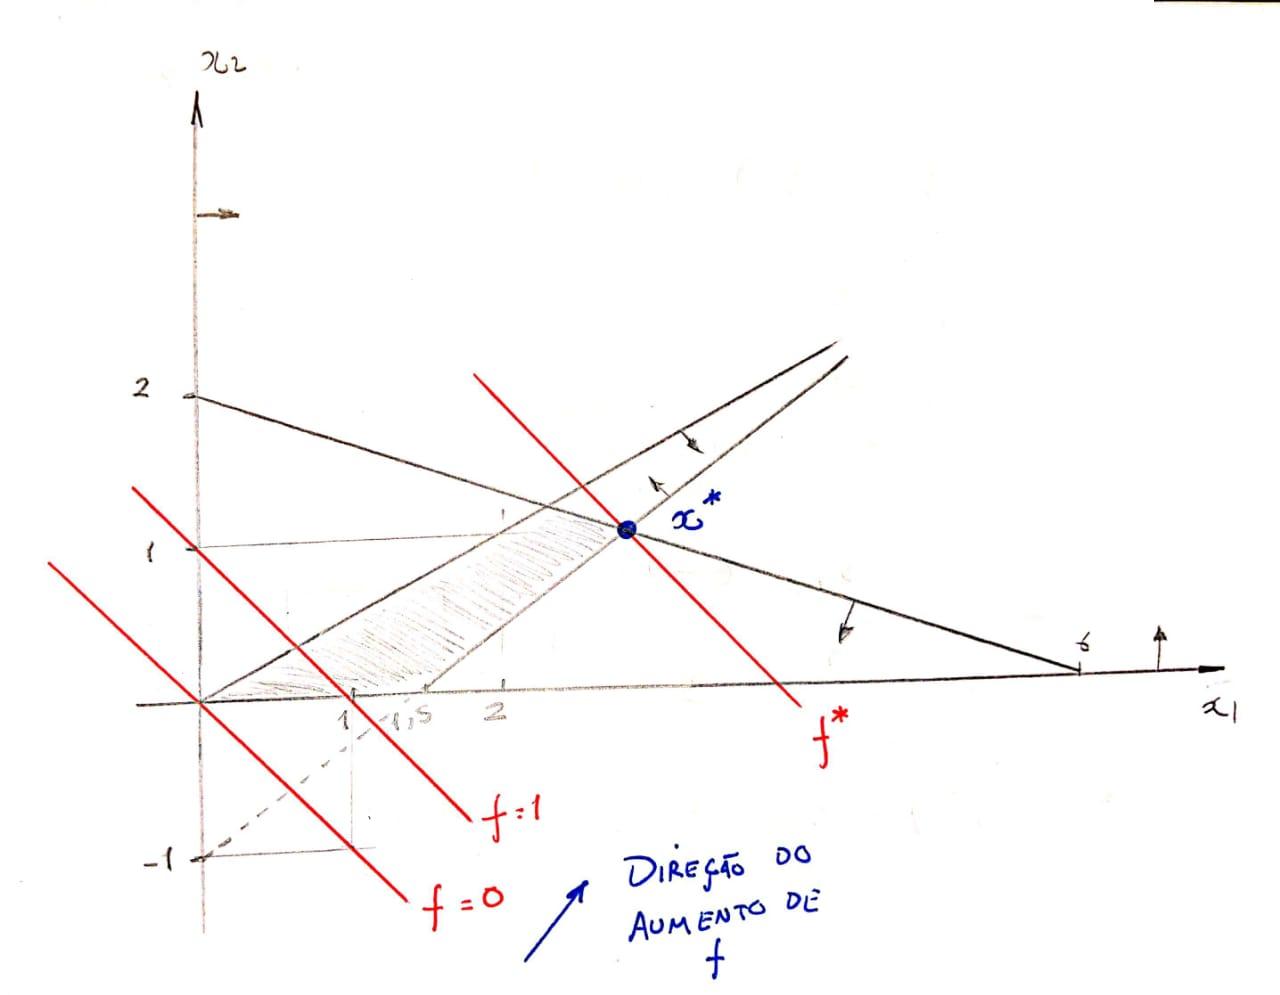 x2
2
x*
1
6
1
1,5
2
x1
f*
f=1
-1
f=0
DIREÇÃO DO
AUMENTO DE
f